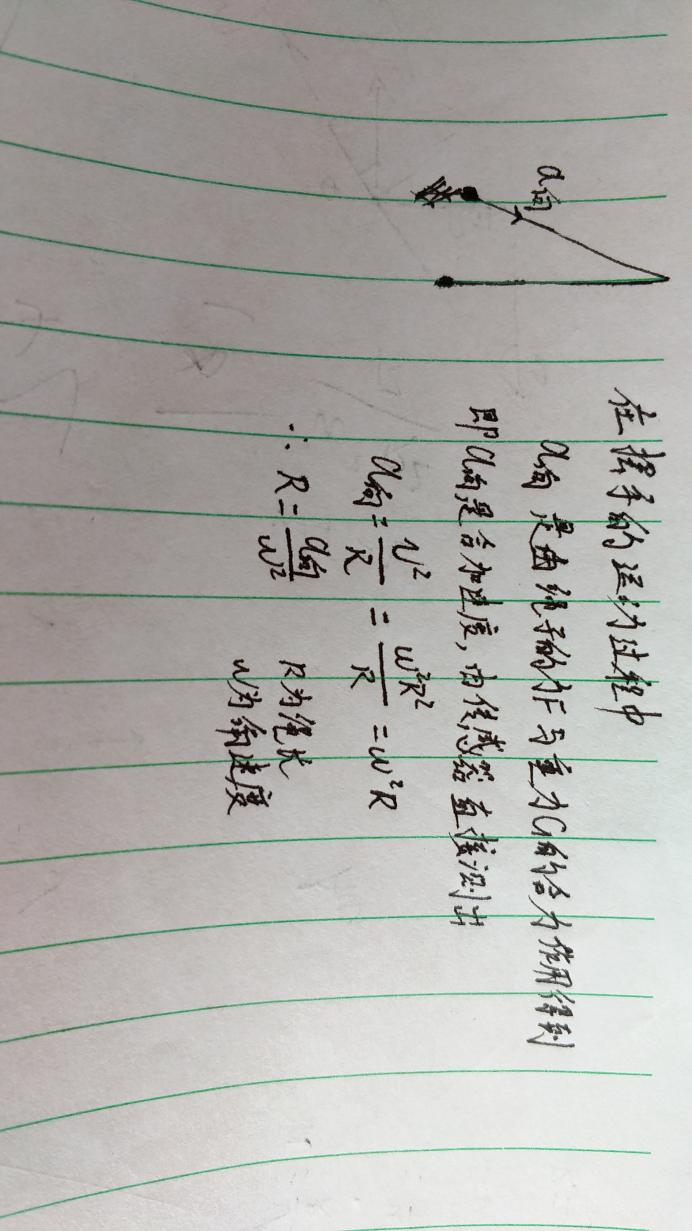 a向
在摆手的运动过程中
a向是由绳子的力F与重力G的合力作用得到
即a向是合加速度,由传感器直接测出
a向=v²/R=w²R²/R=w²R
∴ R=a向/w² R为绳长
w为角速度